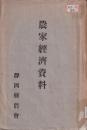 農家經濟資料
靜岡縣農會